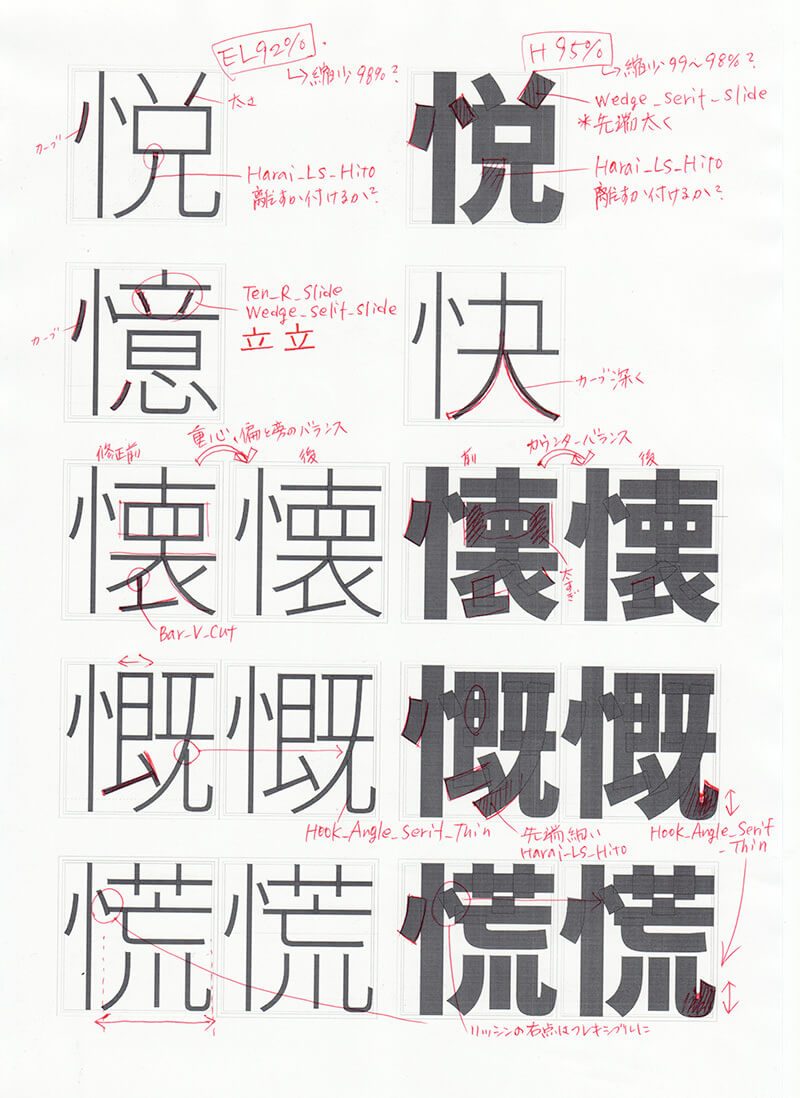 EL92%.
↳縮少98%?
H 95%
↳縮少99〜98%?
悦
太さ
カーブ
Harai_LS_Hito
離すか付けるか?
悦
Wedge_Serif_Slide
*先端太く
Harai_LS_Hito
離すか付けるか?
憶
カーブ
Ten_R_Slide
Wedge_Selif_Slide
立 立
快
カーブ深く
重心、偏と旁のバランス
修正前
後
カウンターバランス
前
後
懐 懐
Bar_V_Cut
懐 懐
太すぎ
慨 慨
Hook_Angle_Serif_Thin
慨 慨
先端細い
Harai_LS_Hito
Hook_Angle_Serif
_Thin
慌 慌
慌 慌
リッシンの右点はフレキシブルに